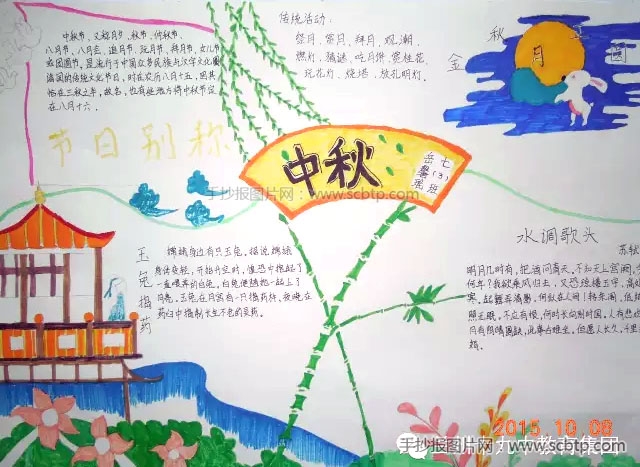 中秋节，又称月夕、秋节、仲秋节、
八月节、八月会、追月节、玩月节、拜月节、女儿节
或团圆节，是流行于中国众多民族与汉字文化圈
诸国的传统文化节日，时在农历八月十五，因其
恰在三秋之半，故名，也有些地方将中秋节定
在八月十六。
节日别称
传统活动：
祭月、赏月、拜月、观潮、
燃灯、猜谜、吃月饼、赏桂花、
玩花灯、烧塔、放孔明灯。
金秋月圆
中秋
七(3)班
岳馨瑶
手抄报图片网：www.scbtp.com
玉兔捣药
嫦娥身边有只玉兔。据说嫦娥
身体变轻，开始升空时，惶恐中抱起了
一直喂养的白兔。白兔便随她一起上了
月亮。玉兔在月宫有一只捣药杵，夜晚在
药臼中捣制长生不老的灵药。
水调歌头
苏轼
明月几时有，把酒问青天，不知天上宫阙，
何年？我欲乘风归去，又恐琼楼玉宇，高
寒，起舞弄清影，何似在人间！转朱阁，低
照无眠，不应有恨，何时长向别时圆，人有悲
月有阴晴圆缺，此事古难全，但愿人长久，千里
娟。
2015.10.08
手抄报图片网
九大教育集团
www.scbtp.com